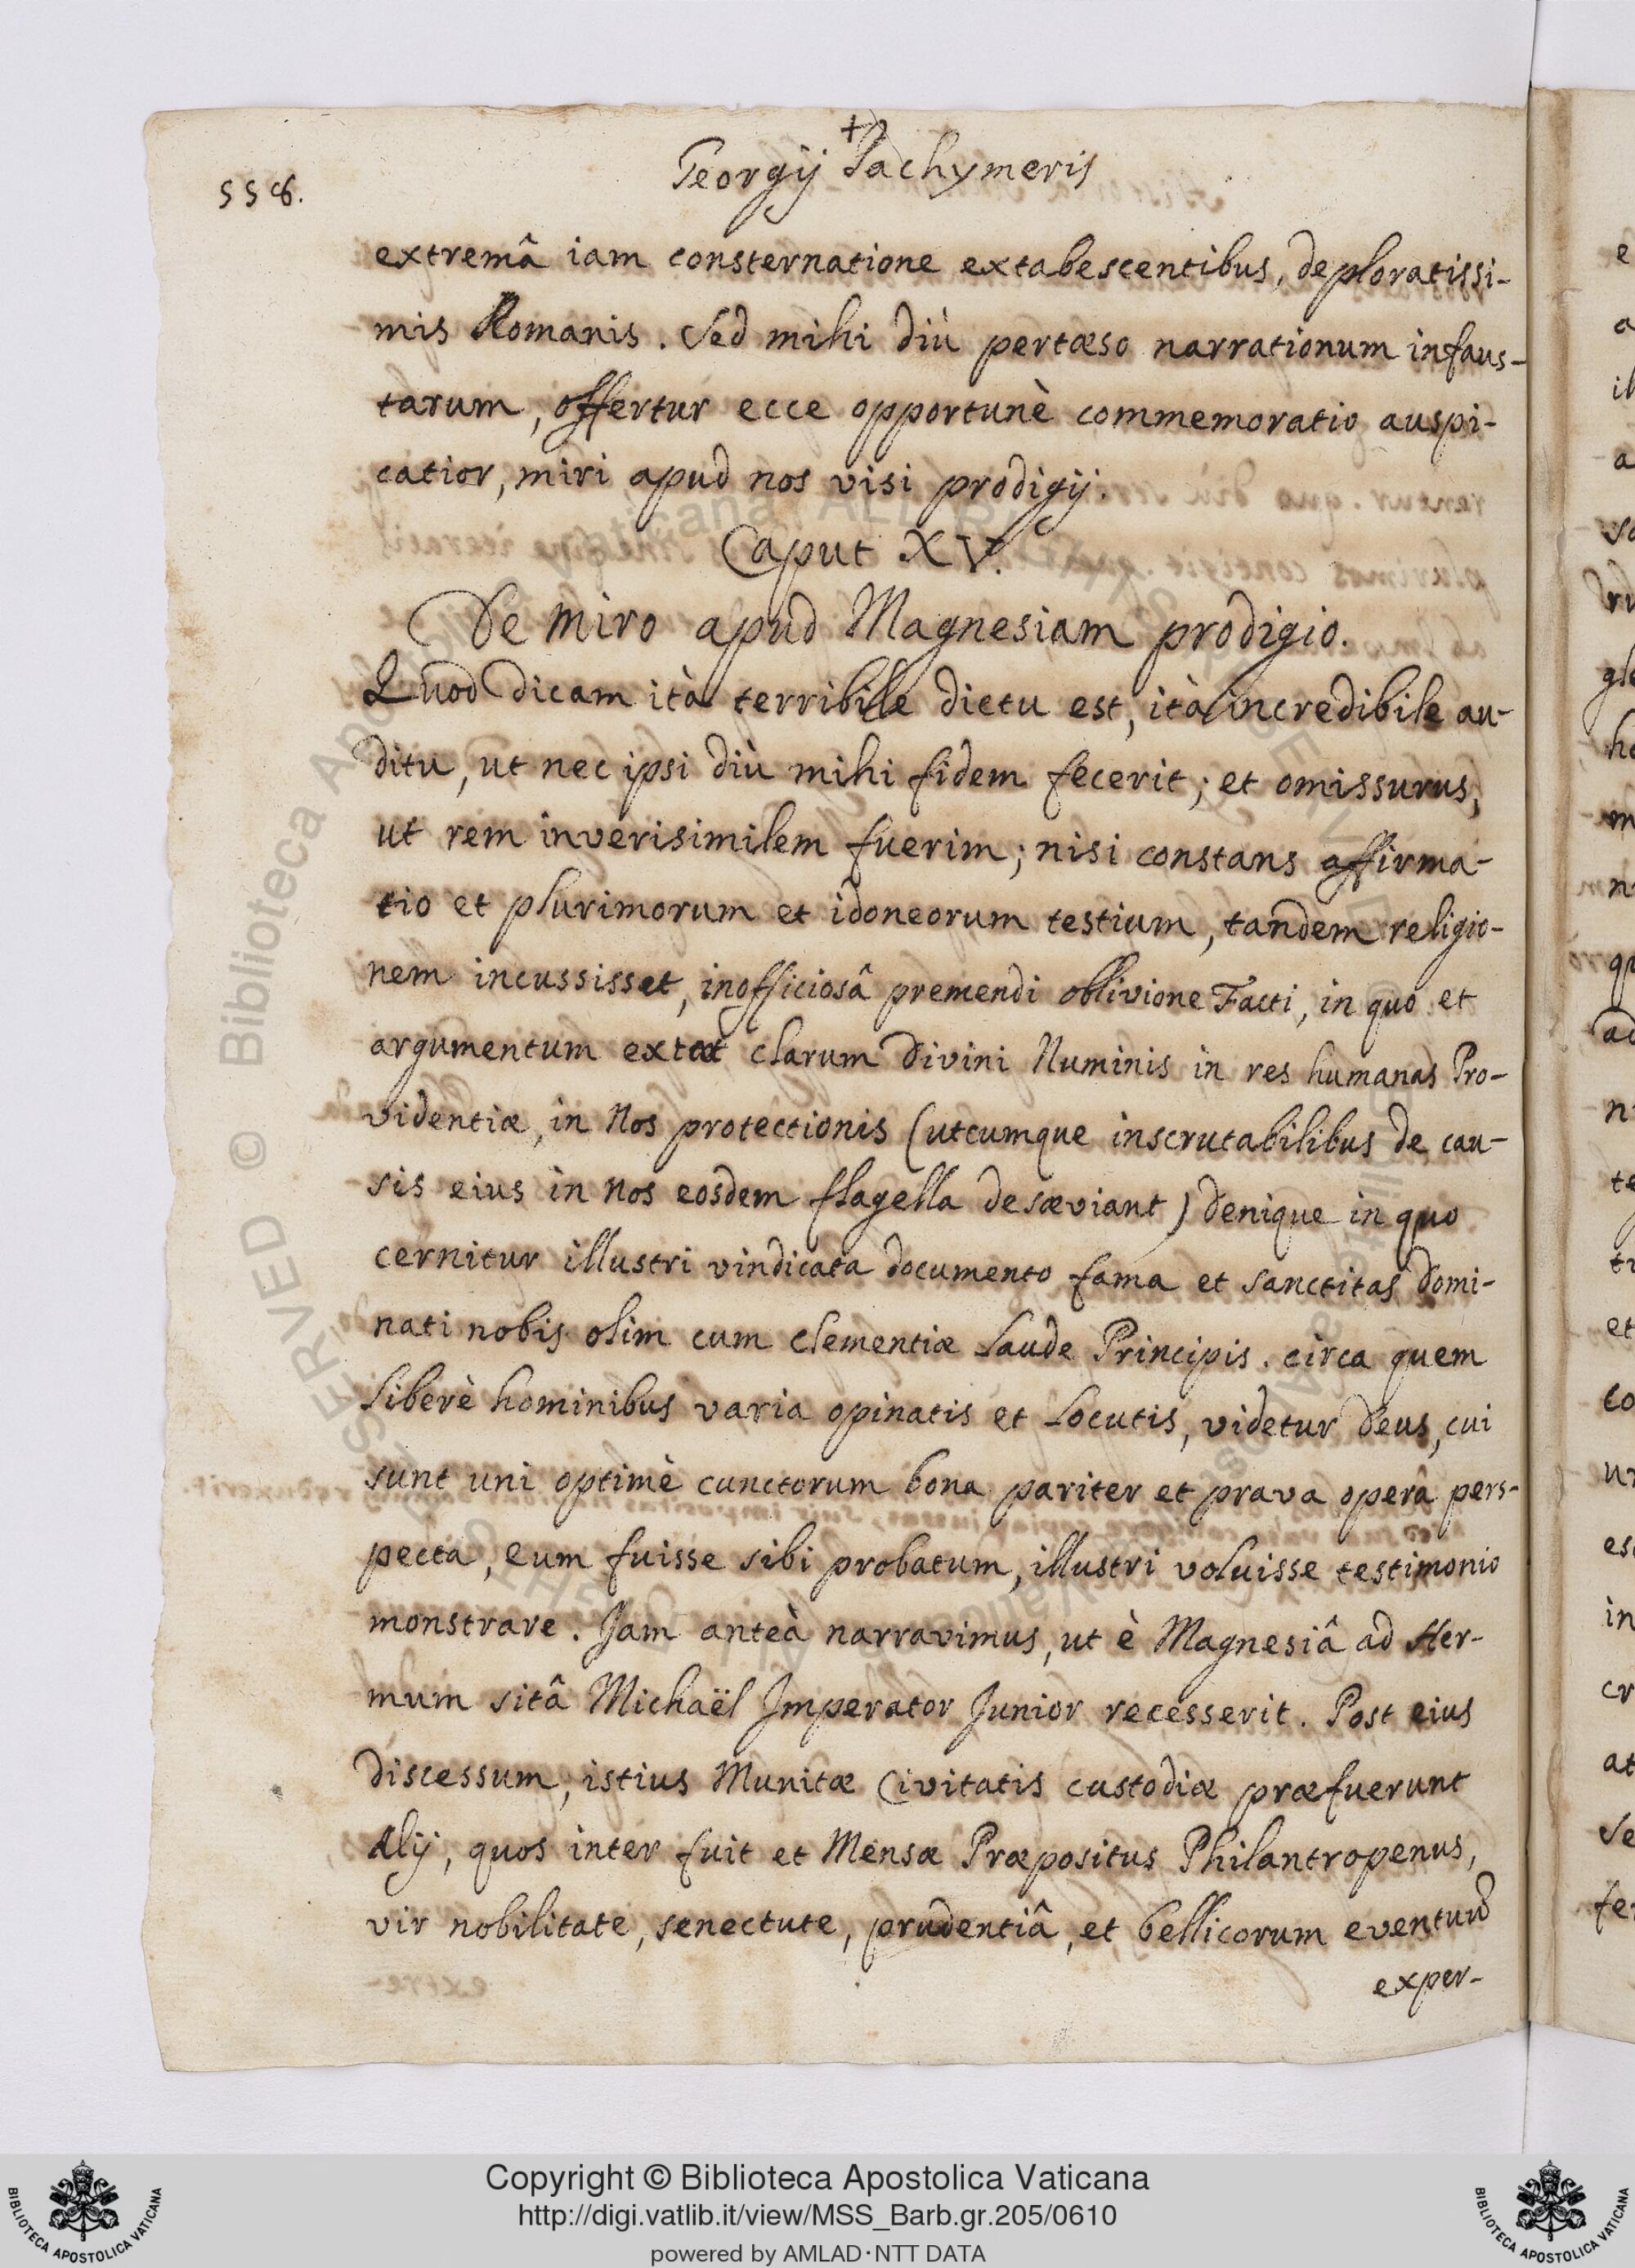 558.
Georgij Pachymeris
extremâ iam consternatione extabescentibus, deploratissi-
mis Romanis. Sed mihi diù pertæso narrationum infaus-
tarum, offertur ecce opportunè commemoratio auspi-
catior, miri apud nos visi prodigij.
Caput XV.
De miro apud Magnesiam prodigio.
Quod dicam ità terribile dictu est, ità incredibile au-
ditu, ut nec ipsi diù mihi fidem fecerit; et omissurus,
ut rem inverisimilem fuerim; nisi constans affirma-
tio et plurimorum et idoneorum testium, tandem religio-
nem incussisset, inofficiosâ premendi oblivione Facti, in quo et
argumentum extat clarum Divini Numinis in res humanas Pro-
videntiæ, in Nos protectionis (utcumque inscrutabilibus de cau-
sis eius in nos eosdem flagella desæviant) denique in quo
cernitur illustri vindicata documento fama et sanctitas Domi-
nati nobis olim cum clementiæ laude Principis. circa quem
liberè hominibus varia opinatis et locutis, videtur Deus, cui
sunt uni optimè cunctorum bona pariter et prava opera pers-
pecta, eum fuisse sibi probatum, illustri voluisse testimonio
monstrare. Jam anteà narravimus, ut è Magnesiâ ad Her-
mum sitâ Michaël Jmperator Junior recesserit. Post eius
discessum, istius Munitæ Civitatis custodiæ præfuerunt
Alij, quos inter fuit et Mensæ Præpositus Philantropenus,
vir nobilitate, senectute, prudentiâ, et bellicorum eventuū
exper-
Copyright © Biblioteca Apostolica Vaticana
http://digi.vatlib.it/view/MSS_Barb.gr.205/0610
powered by AMLAD·NTT DATA
BIBLIOTECA APOSTOLICA VATICANA
BIBLIOTECA APOSTOLICA VATICANA